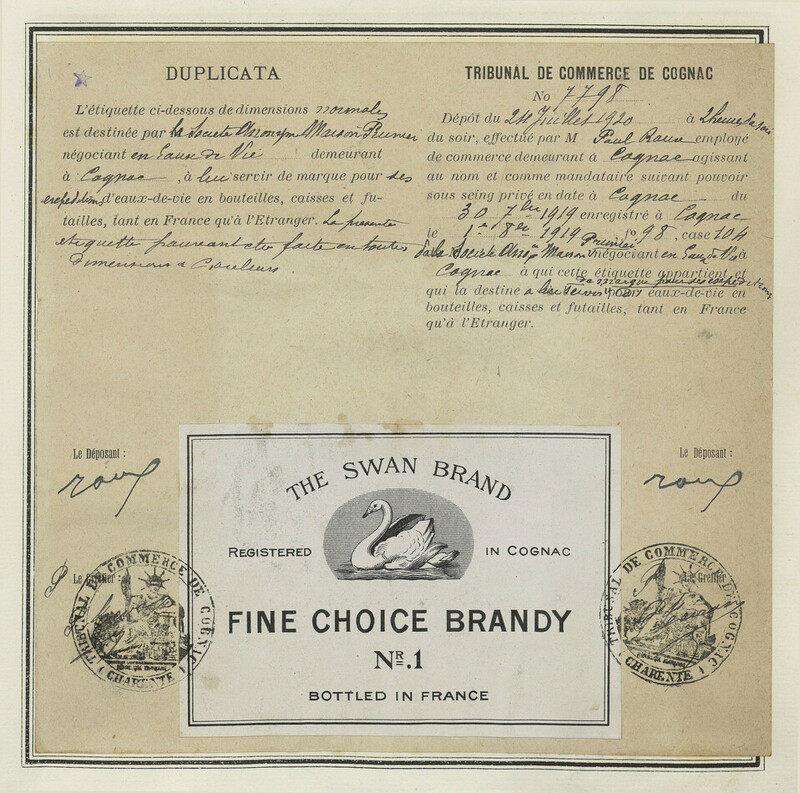 DUPLICATA
L'étiquette ci-dessous de dimensions normales
est destinée par la Société Anonyme Maison Prunier
négociant en Eaux de Vie demeurant
à Cognac, à lui servir de marque pour ses
expéditions d'eaux-de-vie en bouteilles, caisses et fu-
tailles, tant en France qu'à l'Etranger. La présente
etiquette pouvant etre faite en toutes
Dimensions & Couleurs.
TRIBUNAL DE COMMERCE DE COGNAC
No 7798
Dépôt du 24 Juillet 1920 à 2 heures
du soir, effectué par M Paul Roux employé
de commerce demeurant à Cognac agissant
au nom et comme mandataire suivant pouvoir
sous seing privé en date à Cognac du
30 7bre 1919 enregistré à Cognac
le 1er 8bre 1919 fo 98, case 104
de la Société Anoe Maison Prunier négociant en Eaux de Vie à
Cognac à qui cette étiquette appartient et
qui la destine a lui servir de marque pour ses expeditions
eaux-de-vie en
bouteilles, caisses et futailles, tant en France
qu'à l'Etranger.
Le Déposant :
roux
Le Déposant :
roux
Le Greffier :
TRIBUNAL DE COMMERCE DE COGNAC
(CHARENTE)
Le Greffier
TRIBUNAL DE COMMERCE DE COGNAC
(CHARENTE)
THE SWAN BRAND
REGISTERED IN COGNAC
FINE CHOICE BRANDY
NR.1
BOTTLED IN FRANCE